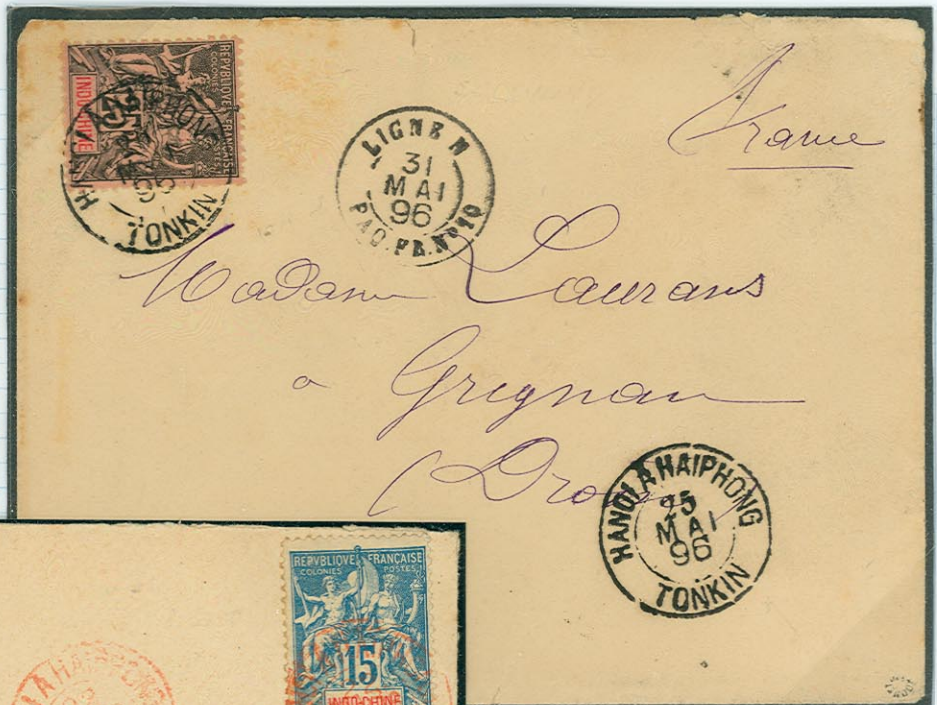 REPVBLIQVE FRANÇAISE
COLONIES POSTES
25
INDO-CHINE
HANOI A HAIPHONG
MAI
96
TONKIN
LIGNE N
31
MAI
96
PAQ. FR. Nº 10
France
Madame Laurans
a Grignan
(Drome)
HANOI A HAIPHONG
25
MAI
96
TONKIN
REPVBLIQVE FRANÇAISE
COLONIES POSTES
15
INDO-CHINE
A HAIPHONG